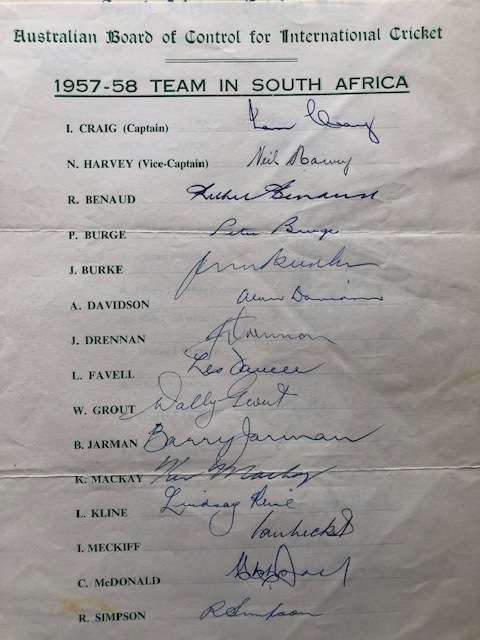 Australian Board of Control for International Cricket
1957-58 TEAM IN SOUTH AFRICA
I. CRAIG (Captain) Ian Craig
N. HARVEY (Vice-Captain) Neil Harvey
R. BENAUD Richie Benaud
P. BURGE Peter Burge
J. BURKE
A. DAVIDSON Alan Davidson
J. DRENNAN J Drennan
L. FAVELL Les Favell
W. GROUT Wally Grout
B. JARMAN Barry Jarman
K. MACKAY Ken Mackay
L. KLINE Lindsay Kline
I. MECKIFF Ian Meckiff
C. McDONALD
R. SIMPSON R Simpson